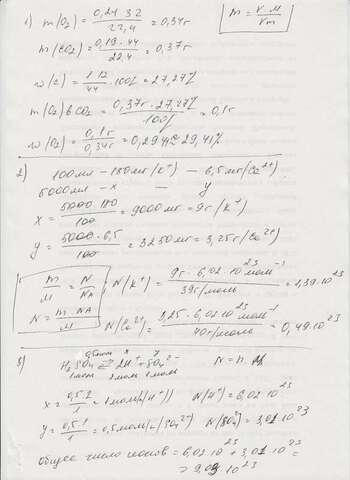 1) m(O₂) = 0,24·32 / 22,4 = 0,34г
m = V·M / Vm
m(CO₂) = 0,19·44 / 22,4 = 0,37г
w(C) = 1·12 / 44 · 100% = 27,27%
m(O₂) в CO₂ = 0,37г · 27,27% / 100% = 0,1г
w(O₂) = 0,1г / 0,34г = 0,2941 29,41%
2) 100мл – 180мг(K⁺) – 6,5мг(Ca²⁺)
5000мл – x – y
x = 5000·180 / 100 = 9000мг = 9г(K⁺)
y = 5000·6,5 / 100 = 3250мг = 3,25г(Ca²⁺)
m / M = N / NA
N(K⁺) = 9г · 6,02·10²³моль⁻¹ / 39г/моль = 1,39·10²³
N = m·NA / M
N(Ca²⁺) = 3,25·6,02·10²³моль⁻¹ / 40г/моль = 0,49·10²³
3) 0,5моль x y
H₂SO₄ ⇄ 2H⁺ + SO₄²⁻
1моль 2моль 1моль
x = 0,5·2 / 1 = 1моль(H⁺) N(H⁺) = 6,02·10²³
y = 0,5·1 / 1 = 0,5моль(SO₄²⁻) N(SO₄²⁻) = 3,01·10²³
общее число ионов = 6,02·10²³ + 3,01·10²³ =
= 9,03·10²³